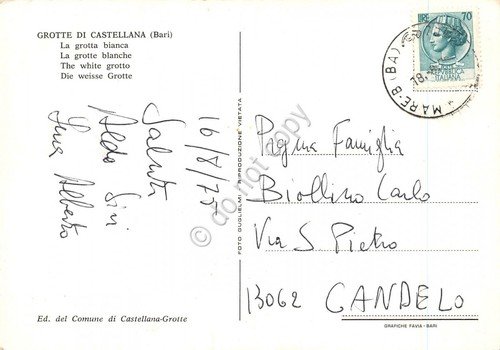 GROTTE DI CASTELLANA (Bari)
La grotta bianca
La grotte blanche
The white grotto
Die weisse Grotte
16/8/75
Saluti
Aldo Sisi
Luca Alberto
Ed. del Comune di Castellana-Grotte
FOTO GUGLIELMI - RIPRODUZIONE VIETATA
70
REPUBBLICA
ITALIANA
18.
MARE-B (BA).
Pregma Famiglia
Biollino Carlo
Via S Pietro
13062 CANDELO
GRAFICHE FAVIA - BARI
do not copy